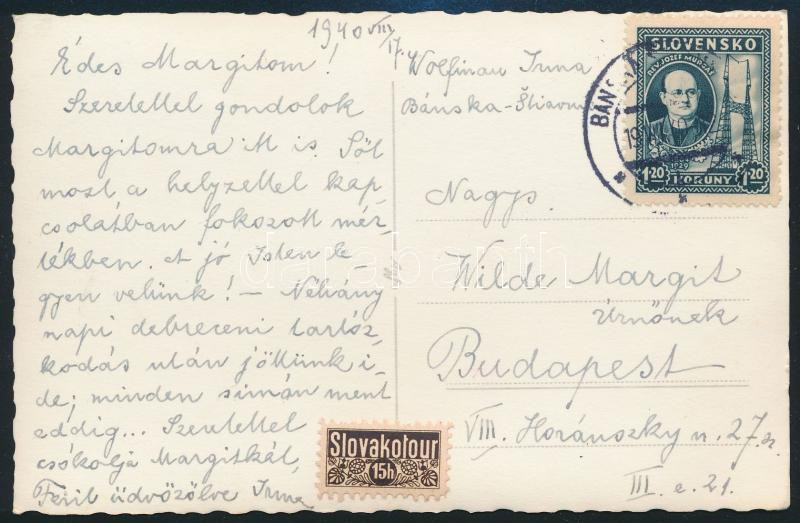 1940 VIII/17.
Édes Margitom!
Szeretettel gondolok
Margitomra itt is. Sőt
most a helyzettel kap-
csolatban fokozott mér-
tékben. A jó Isten le-
gyen velünk! — Néhány
napi debreceni tartóz-
kodás után jöttünk i-
de; minden simán ment
eddig... Szeretettel
csókolja Margitkát,
Ferit üdvözölve Irma
Wolfinau Irma
Bánska-Štiavn
Nagys.
Wilde Margit
Úrnőnek
Budapest
VIII. Horánszky u. 27 sz.
III. e. 21.
SLOVENSKO
REV. JOZEF MURGAŠ
1929
1.20 KORUNY 1.20
BÁNS
Slovakotour
15h
darabanth